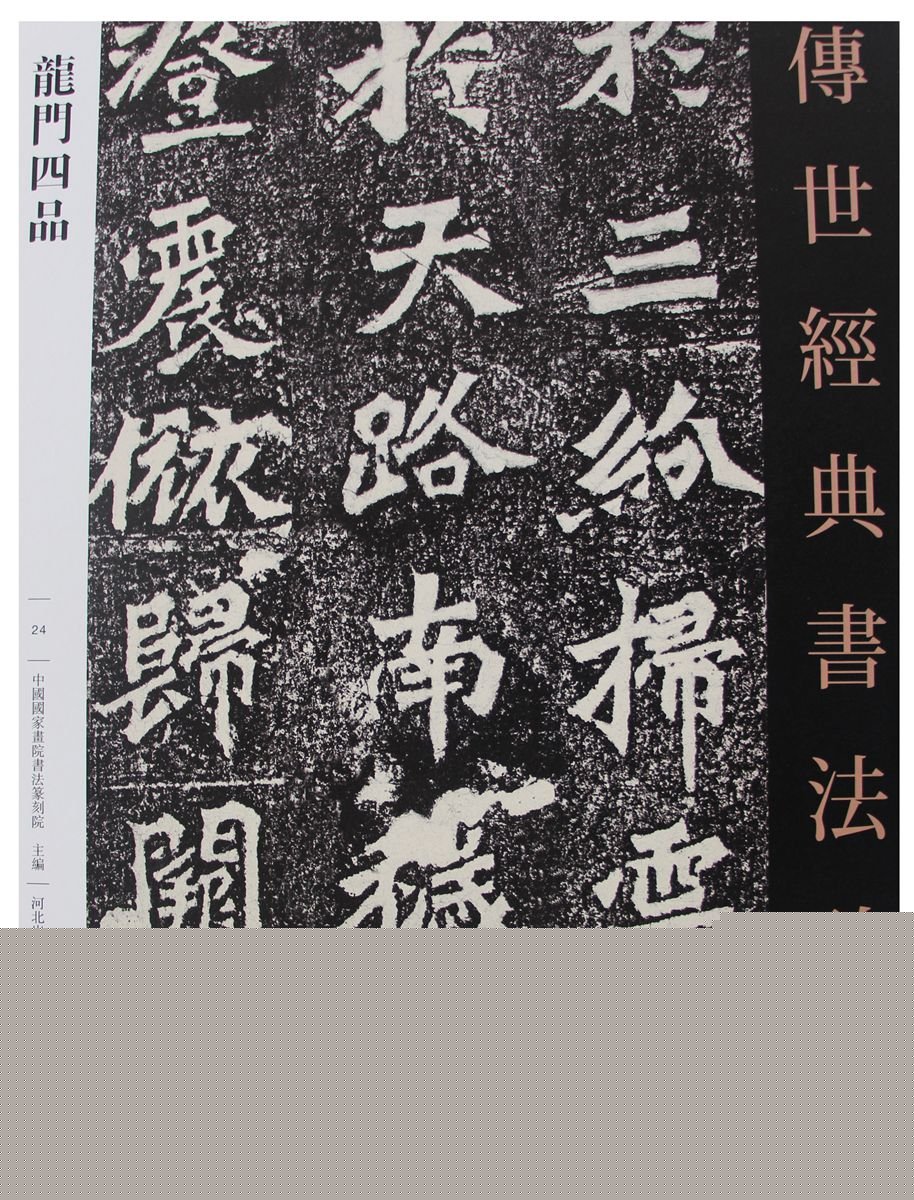 傳世經典書法
於三紛掃雲
於天路南
澄震依歸闕
龍門四品
24
中國國家畫院書法篆刻院 主編
河北